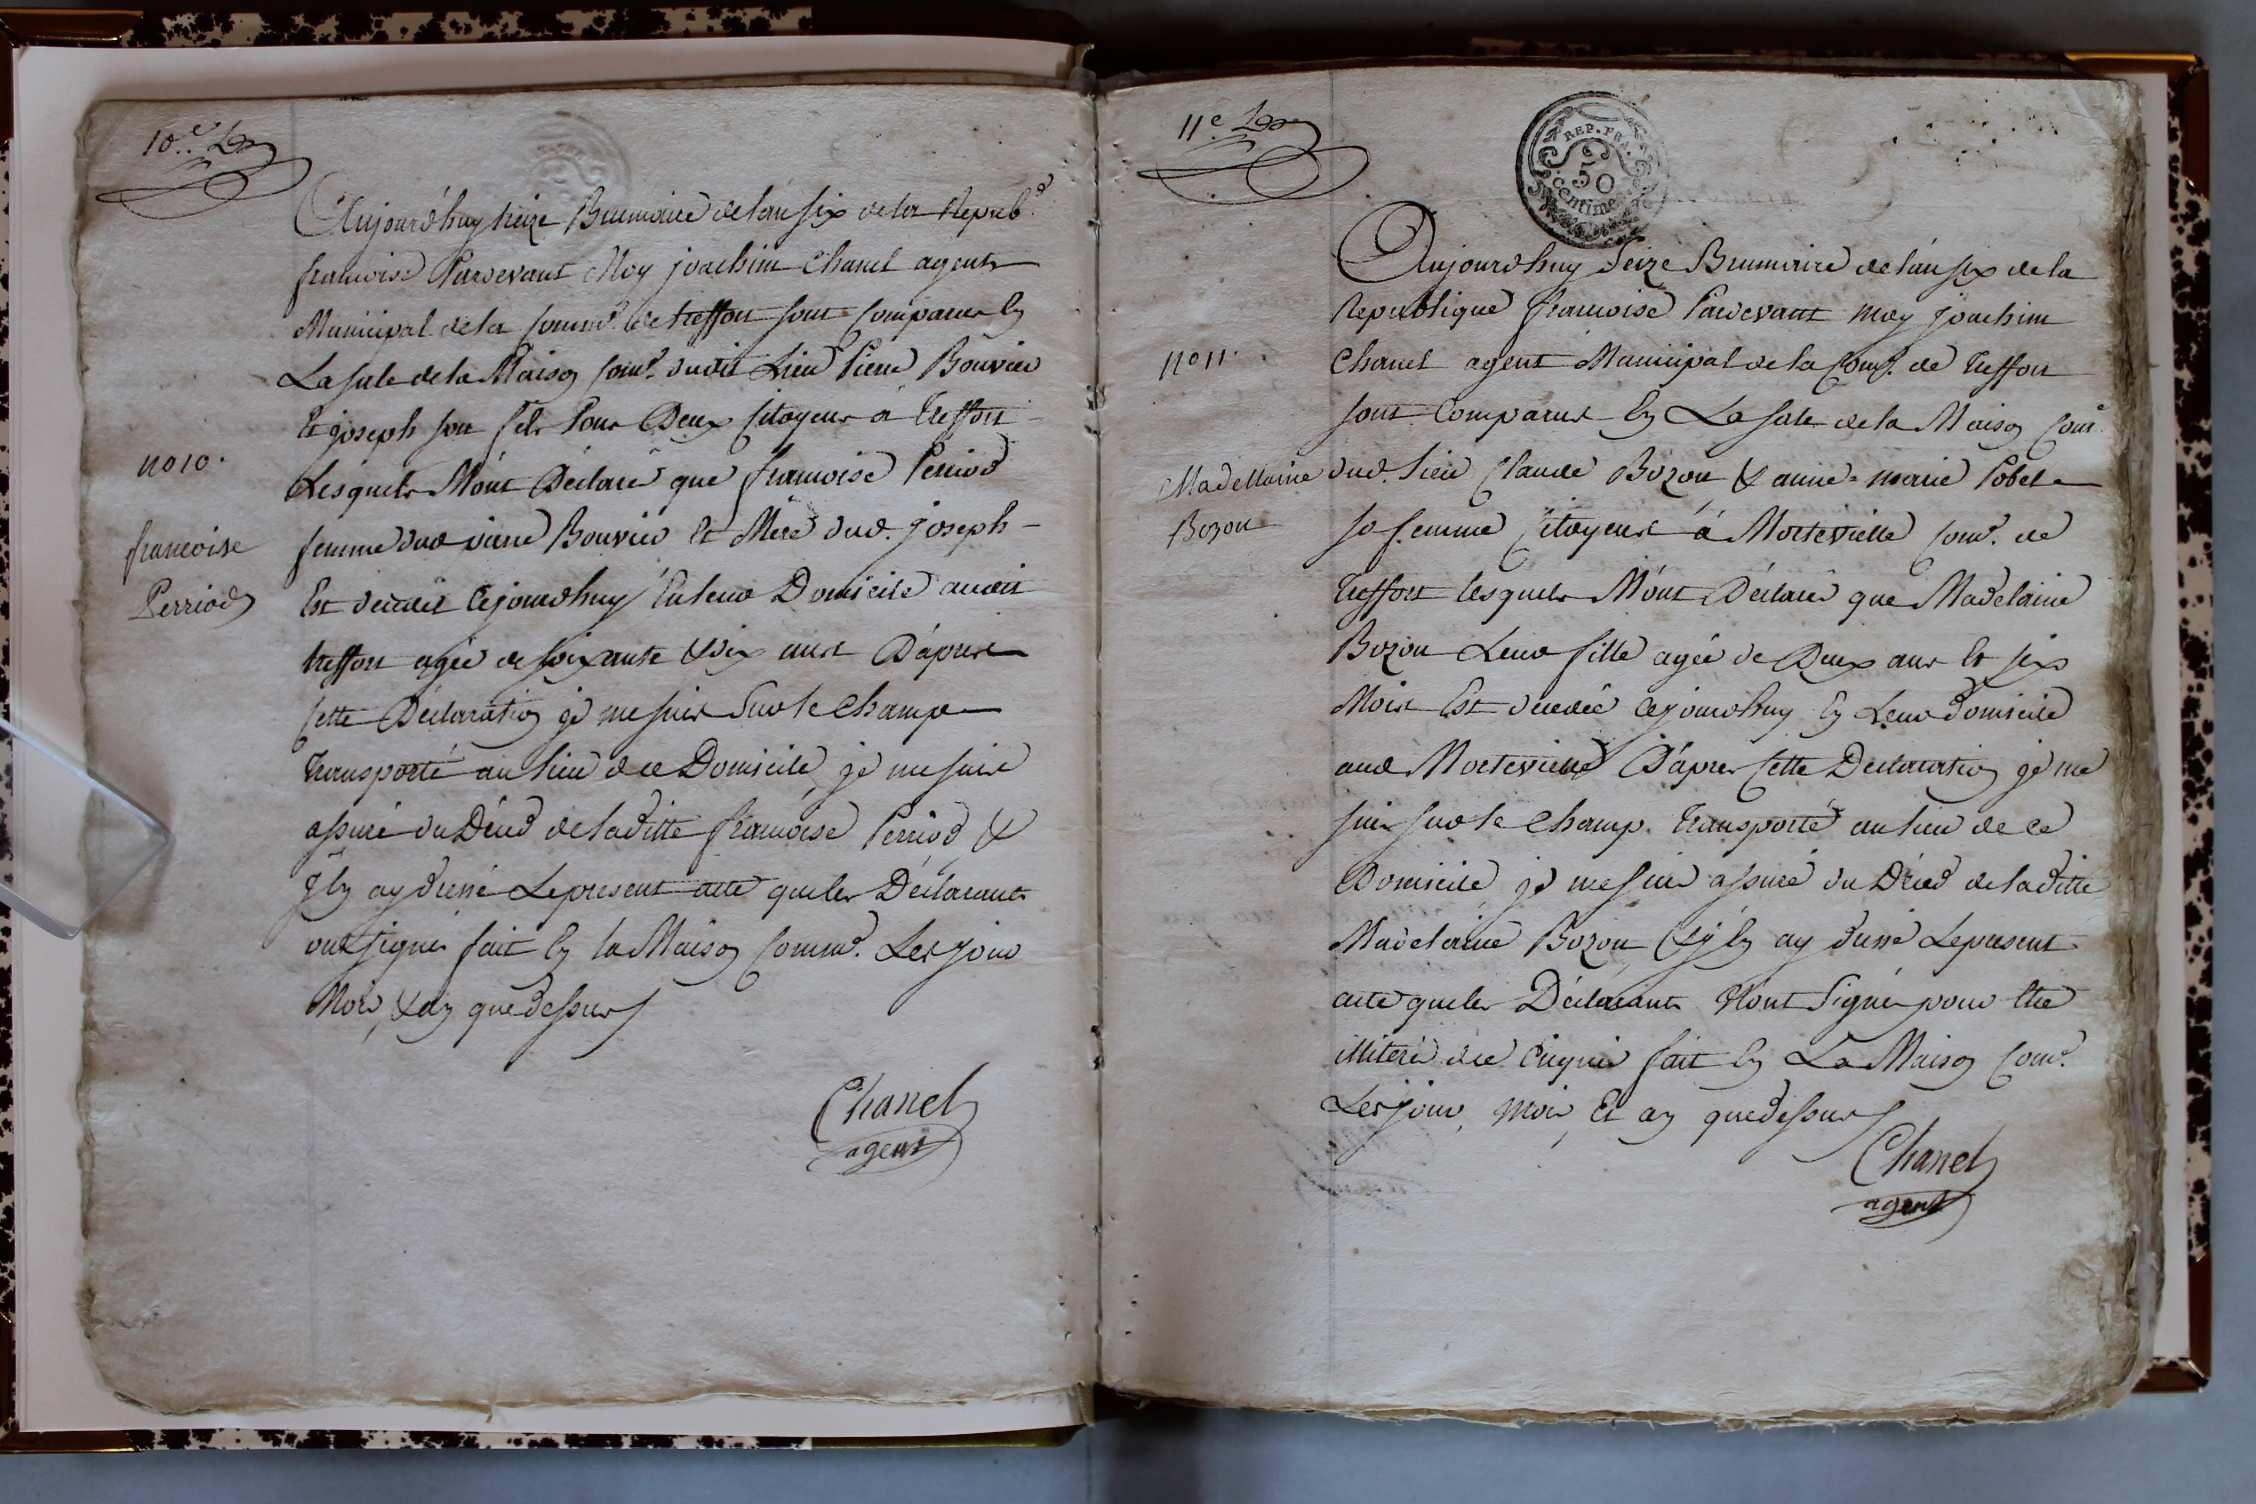 10.e
Aujourd'huy treize Brumaire de l'an six de la Repub.e
francoise Pardevant Moy joachim Chanel agent
Municipal de la Comm.e de treffort sont comparus En
La sale de la Maison Com.e dudit Lieu Pierre Bouvier
Et joseph son fils tous Deux Citoyens à Treffort
Lesquels M'ont Déclaré que francoise Perriod
femme dud pierre Bouvier Et Mère dud. joseph
Est décédée Cejourdhuy En leur Domicile audit
treffort agée de soixante & dix ans D'après
Cette Déclaration je me suis Sur le Champ
Transporté au lieu de ce Domicile je me suis
assuré du Décés de laditte francoise Perriod &
j'En ay dressé Le present acte que les Déclarants
ont signé fait En la Maison Comm.e Les jour
Mois, & an que dessus
no 10.
francoise
Perriod
Chanel
agent
11.e
REP. FRA.
50
centimes
Aujourdhuy Seize Brumaire de l'an six de la
Republique francoise Pardevant moy joachim
Chanel agent Municipal de la Com.e de Treffort
sont Comparus En La sale de la Maison Com.e
dud. Lieu Claude Bozon & anne-marie Pobel
sa femme Citoyens à Montevielle Com.e de
Treffort lesquels M'ont Déclaré que Madelaine
Bozon Leur fille agée de Deux ans Et six
Mois Est décédée Cejourdhuy En Leur domicile
aud Montevielle D'après Cette Declaration je me
suis sur le Champ Transporté au lieu de ce
Domicile je me suis assuré du Décés de laditte
Madelaine Bozon & j'En ay dressé Le present
acte que les Déclarants N'ont Signé pour Etre
illiteré de ce Enquis fait En La Maison Com.e
Les jour, mois, Et an que dessus
no 11.
Madellaine
Bozon
Chanel
agent